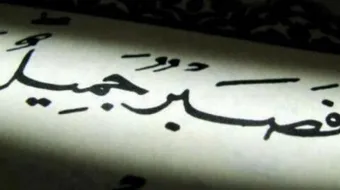 فصبرٌ جميلٌ